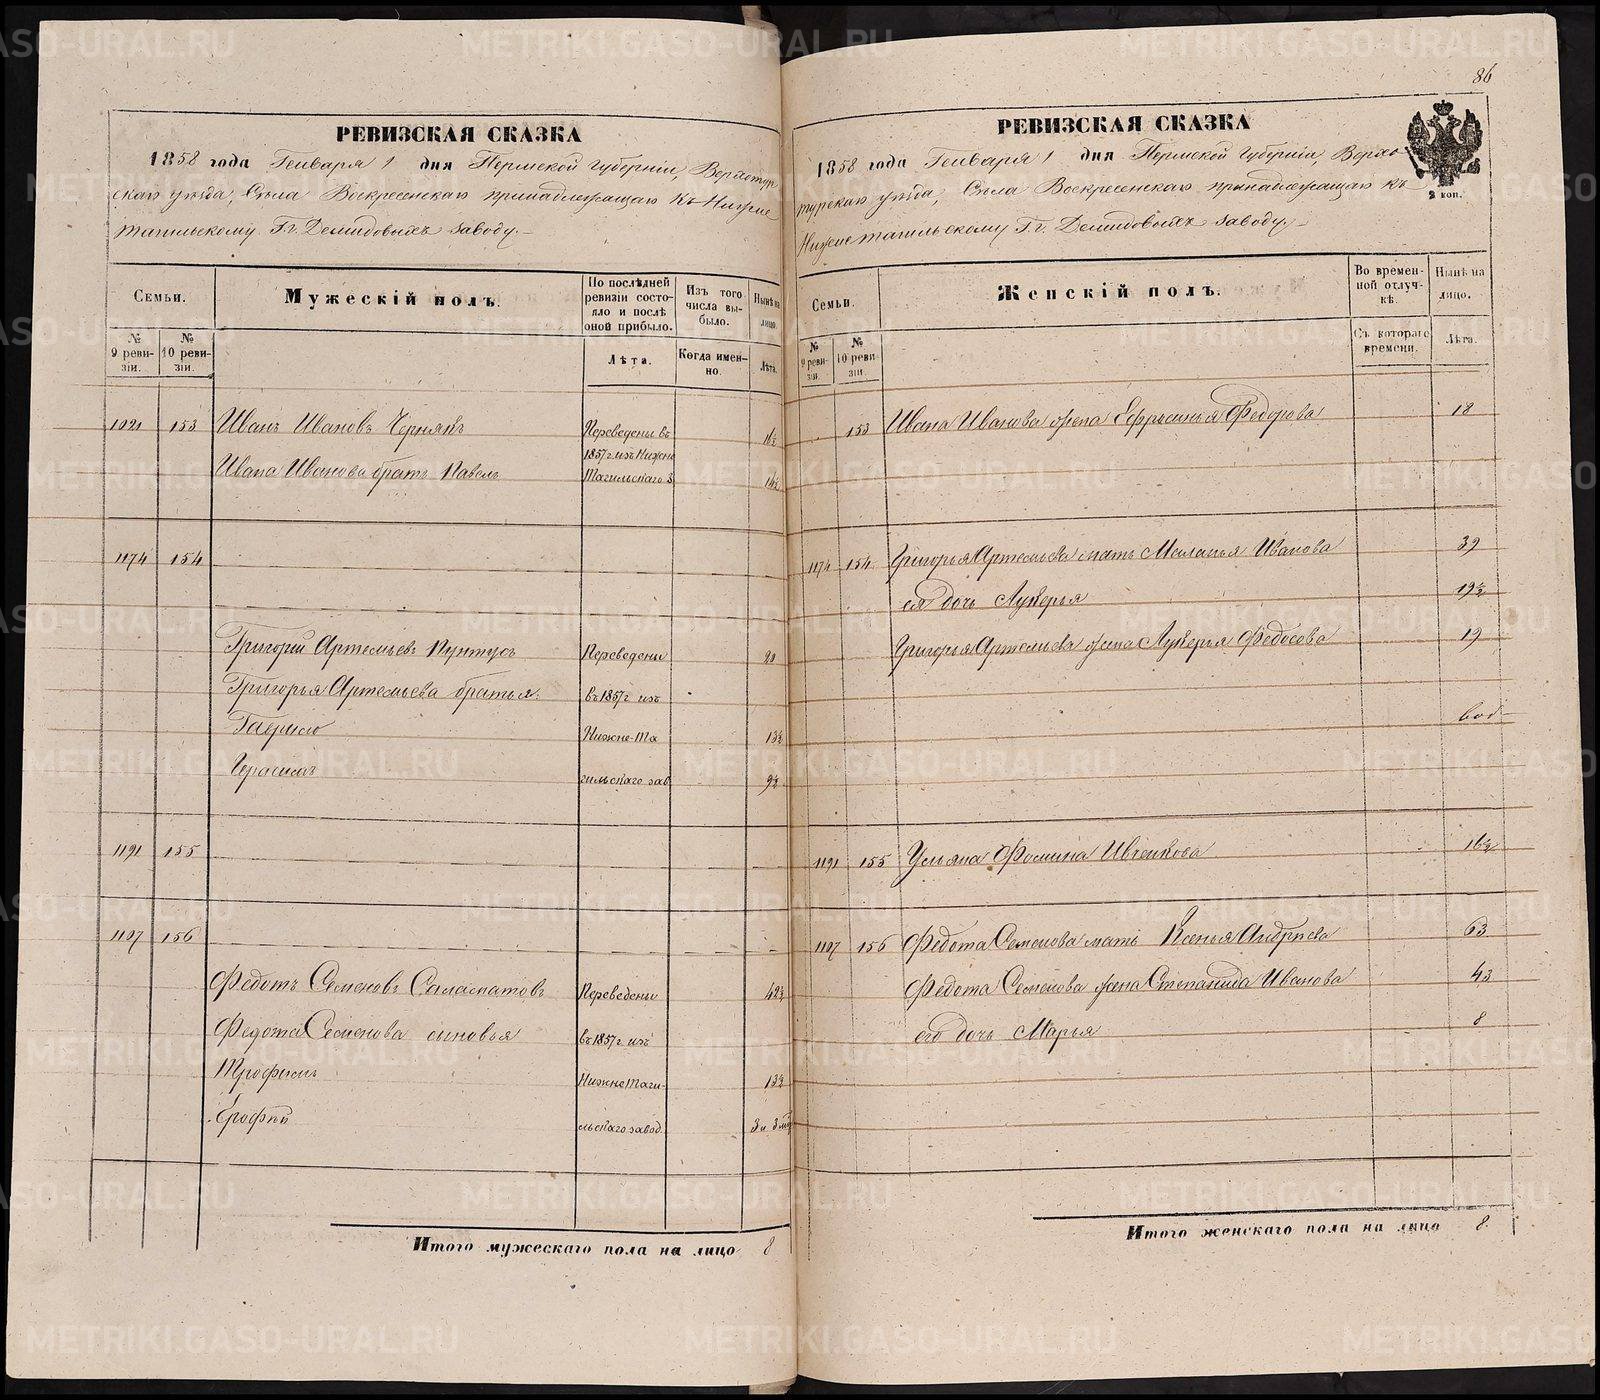 86
РЕВИЗСКАЯ СКАЗКА
1858 года Генваря 1 дня Пермской Губерніи, Верхотур
скаго уѣзда, Села Воскресенскаго принадлежащаго къ Нижне
тагильскому Г.г. Демидовыхъ заводу.
Семьи.
Мужескій полъ.
По послѣдней ревизіи состояло и послѣ оной прибыло.
Изъ того числа выбыло.
Нынѣ на лицо.
№ 9 ревизіи.
№ 10 ревизіи.
Лѣта.
Когда именно.
Лѣта.
1021 153 Иванъ Ивановъ Чернякъ Переведены въ 16½
1857 г. изъ Нижне
Ивана Иванова братъ Павелъ Тагильскаго З. 14½
1174 154
Григорій Артемьевъ Пунтусъ Переведены 20
Григорья Артемьева братья: въ 1857 г. изъ
Гаврило Нижне-Та 13½
Герасимъ гильскаго зав. 9½
1191 155
1107 156
Федотъ Семеновъ Саламатовъ Переведены 42½
Федота Семенова сыновья въ 1857 г. изъ
Трофимъ Нижне Таги- 13½
Ерофѣй льскаго завод. 3 и 3 мѣ
Итого мужескаго пола на лицо 8
РЕВИЗСКАЯ СКАЗКА
1858 года Генваря 1 дня Пермской Губерніи, Верхо
турскаго уѣзда, Села Воскресенскаго принадлежащаго къ
Нижнетагильскому Г.г. Демидовыхъ заводу.
2 коп.
Семьи.
Женскій полъ.
Во временной отлучкѣ.
Нынѣ на лицо.
№ 9 ревизіи.
№ 10 ревизіи.
Съ котораго времени.
Лѣта.
153 Ивана Иванова жена Ефросинья Федорова 18
1174 154 Григорья Артемьева мать Маланья Иванова 39
ея дочь Лукерья 19½
Григорья Артемьева жена Лукерья Федосова 19
1191 155 Ульяна Фомина Ивченкова 16½
1107 156 Федота Семенова мать Ксенья Андреева 63
Федота Семенова жена Степанида Иванова 43
его дочь Марья 8
Итого женскаго пола на лицо 8.
METRIKI.GASO-URAL.RU